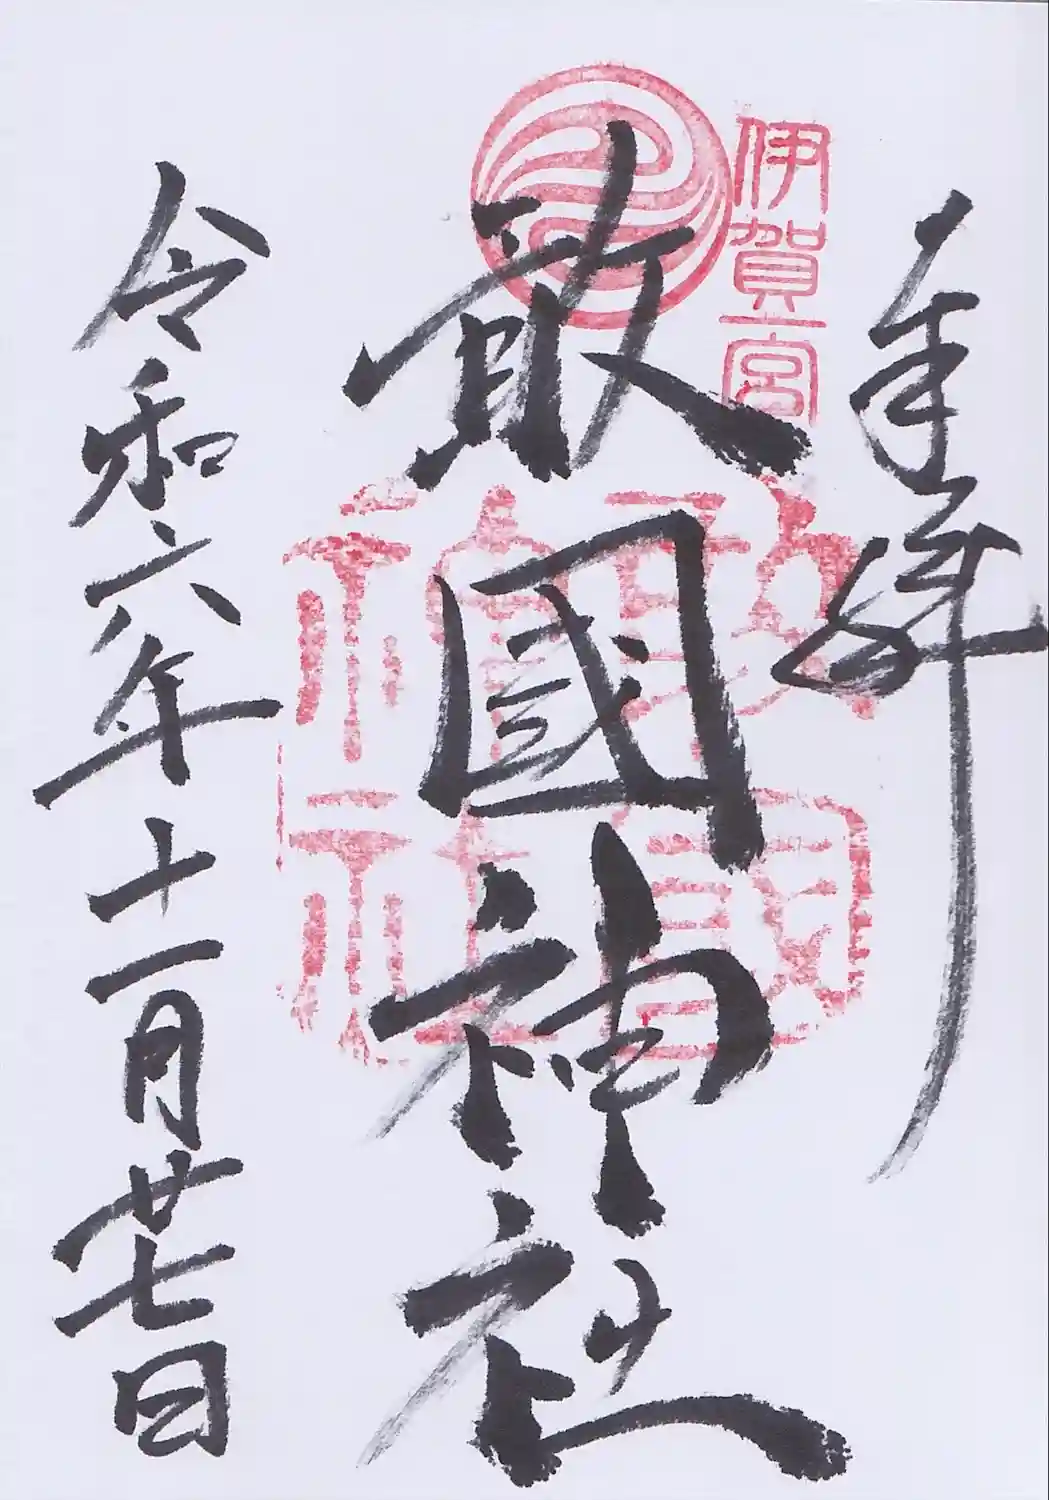 奉拝
伊賀一宮
敢國神社
敢國神社
令和六年十一月廿七日